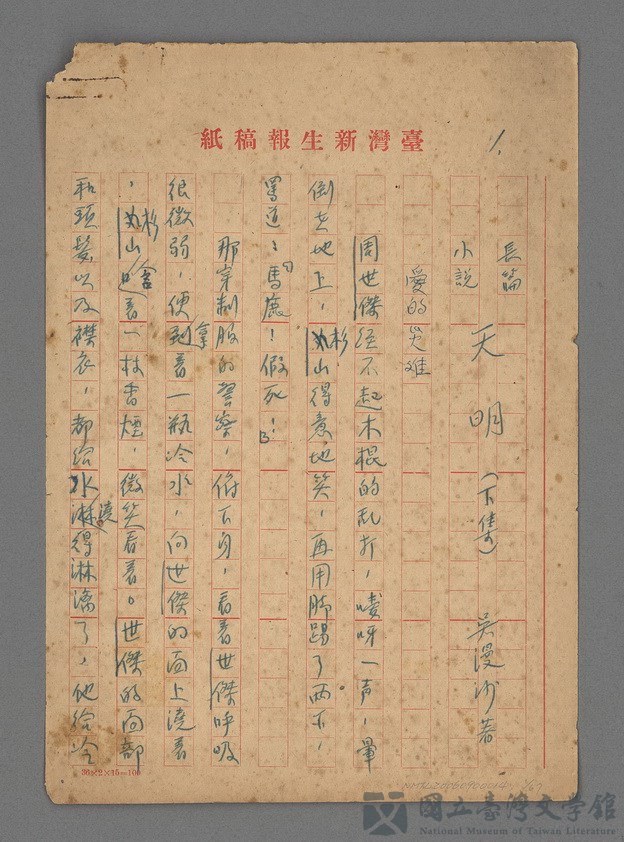 臺灣新生報稿紙
1.
長篇
小說
天明（下集） 吳漫沙著
愛的災难
周世傑經不起木棍的乱打，嘎呀一声，暈
倒在地上，杉山得意地笑，再用脚踢了两下，
罵道：「馬鹿！假死！」
那穿制服的警察，俯下身，看着世傑呼吸
很微弱，便拿着一瓶冷水，向世傑的面上澆着
，杉山含着一枝香煙，微笑看着。世傑的面部
和頭髮以及襟衣，都给水澆得淋漓了，他给冷
國立臺灣文学館
National Museum of Taiwan Literature